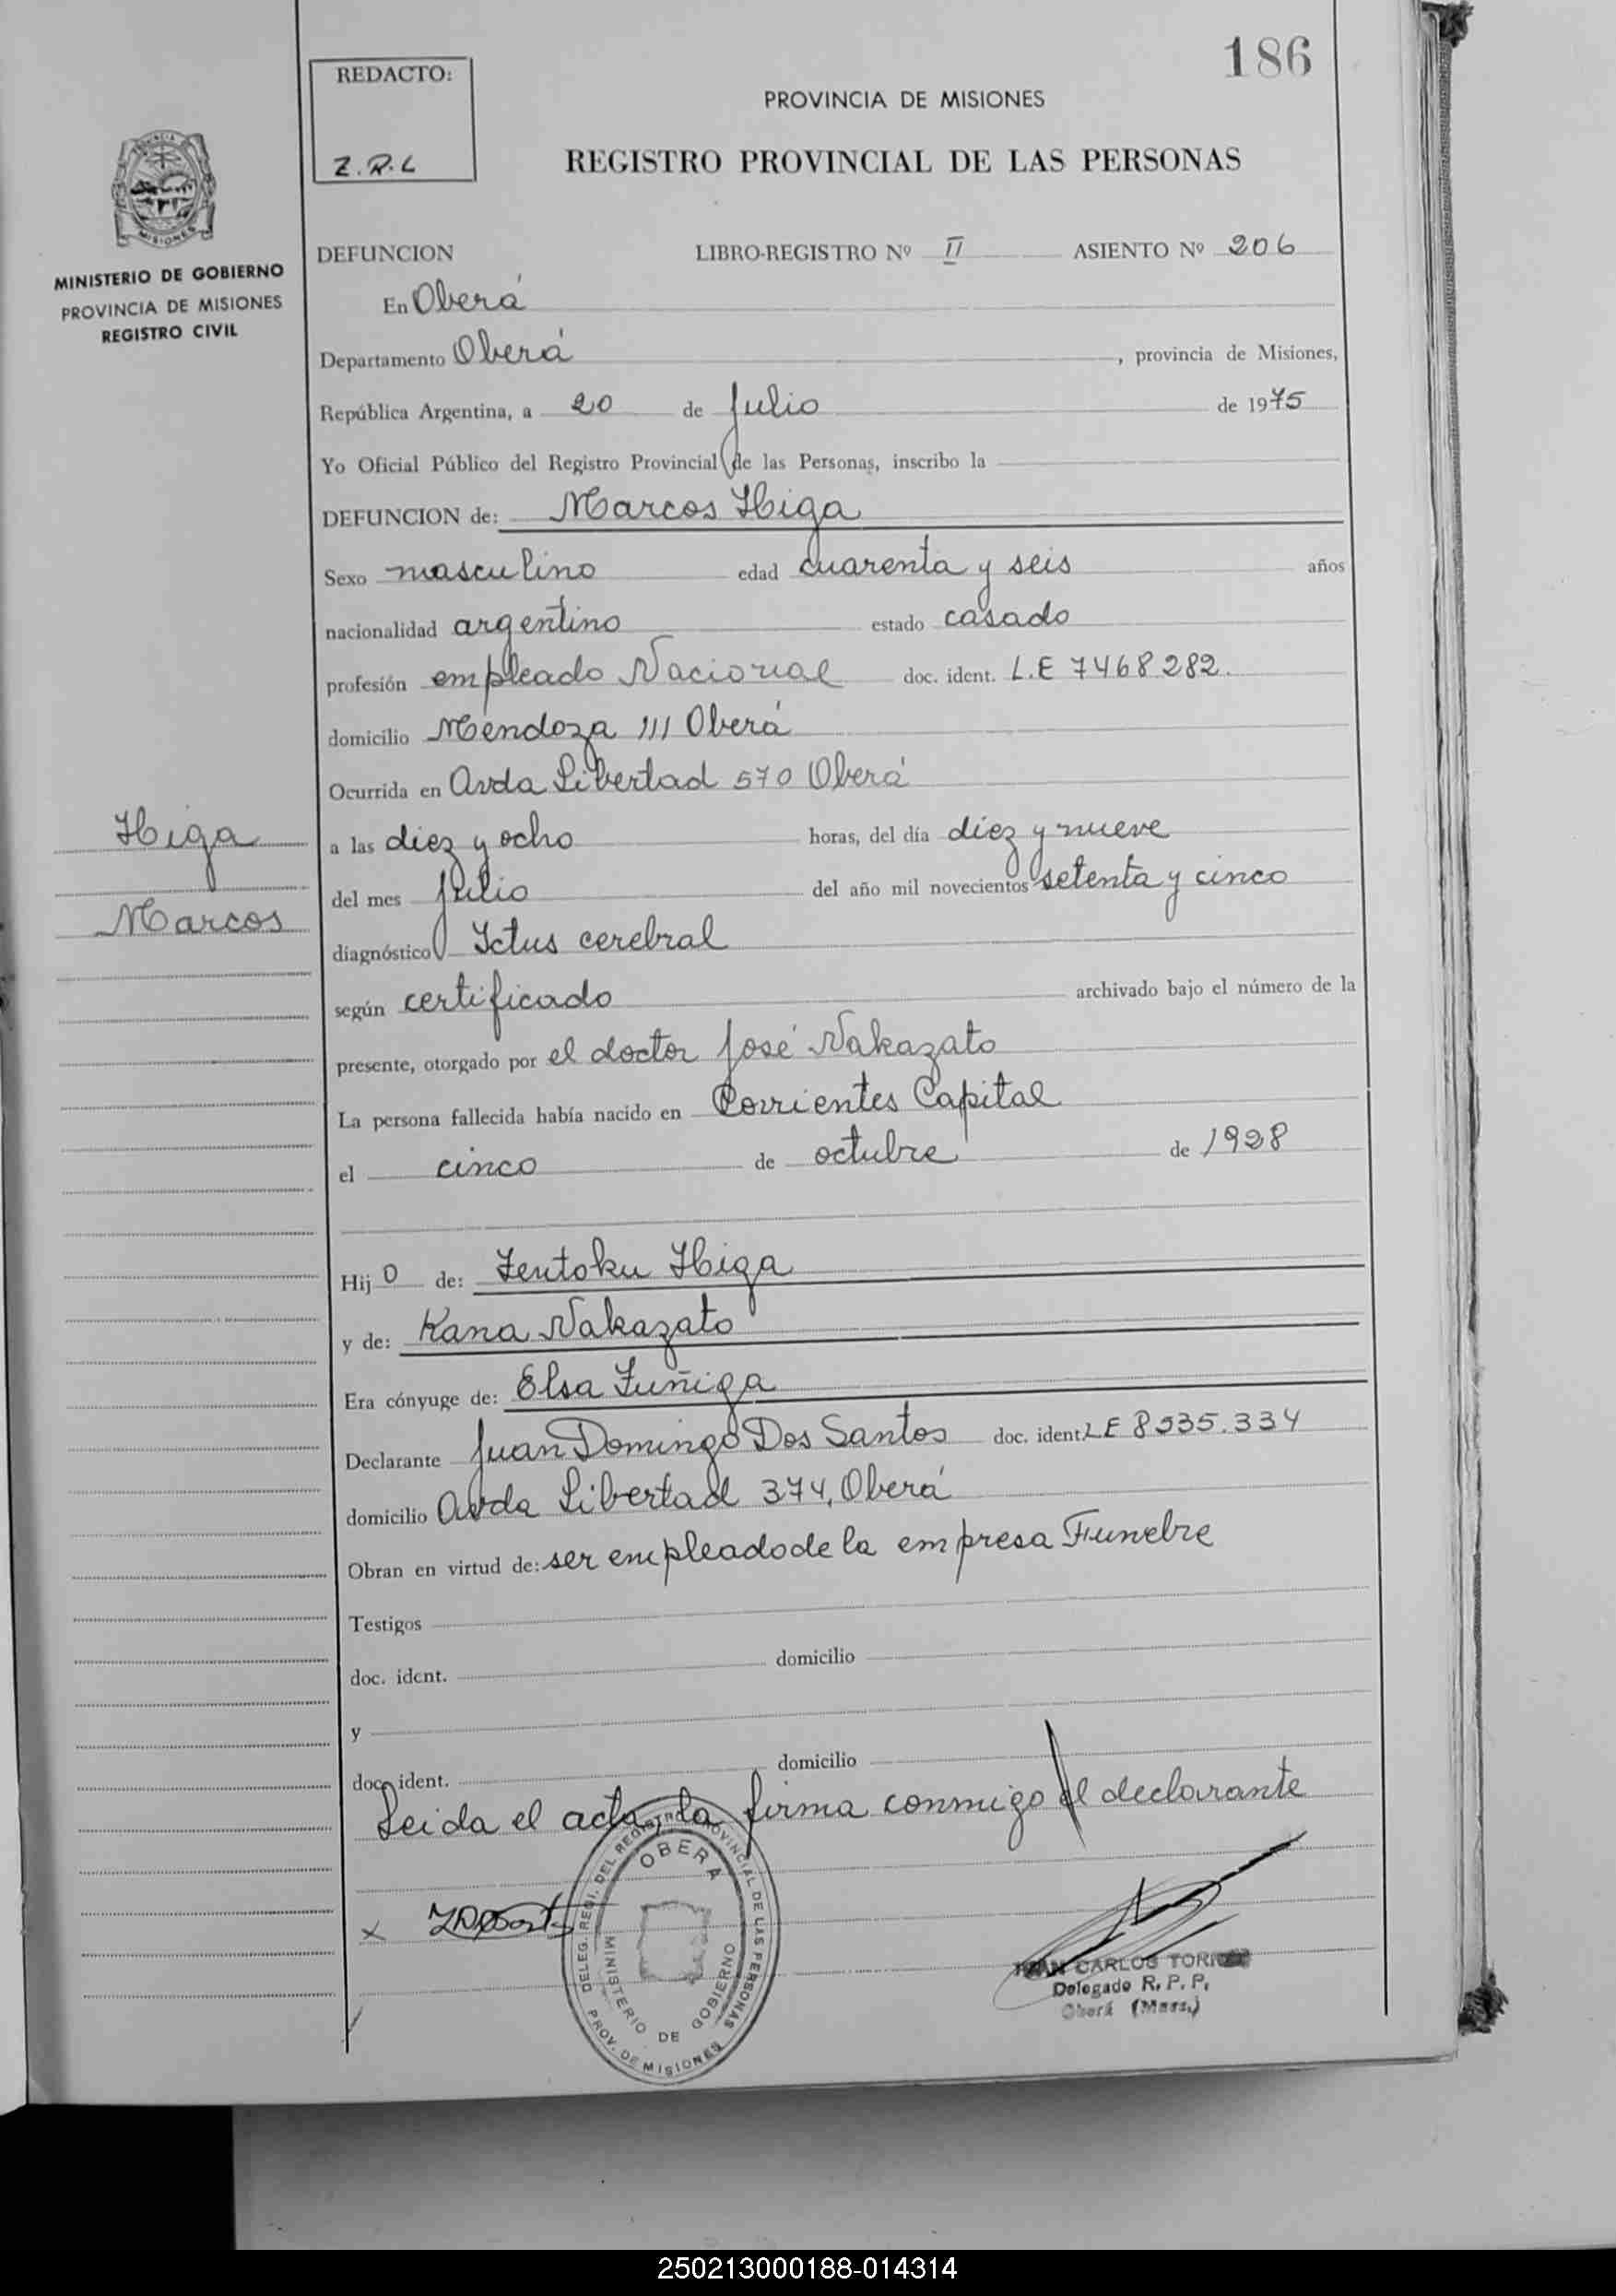 186
REDACTO:
Z.R.L
PROVINCIA DE MISIONES
REGISTRO PROVINCIAL DE LAS PERSONAS
MINISTERIO DE GOBIERNO
PROVINCIA DE MISIONES
REGISTRO CIVIL
DEFUNCION LIBRO-REGISTRO Nº II ASIENTO Nº 206
En Oberá
Departamento Oberá, provincia de Misiones,
República Argentina, a 20 de Julio de 1975
Yo Oficial Público del Registro Provincial de las Personas, inscribo la
DEFUNCION de: Marcos Higa
Sexo masculino edad cuarenta y seis años
nacionalidad argentino estado casado
profesión empleado Nacional doc. ident. L.E 7468282.
domicilio Mendoza 111 Oberá
Ocurrida en Avda Libertad 570 Oberá
Higa
a las diez y ocho horas, del día diez y nueve
del mes Julio del año mil novecientos setenta y cinco
Marcos
diagnóstico Ictus cerebral
según certificado archivado bajo el número de la
presente, otorgado por el doctor José Nakazato
La persona fallecida había nacido en Corrientes Capital
el cinco de octubre de 1928
Hij o de: Zentoku Higa
y de: Kana Nakazato
Era cónyuge de: Elsa Zuñiga
Declarante Juan Domingo Dos Santos doc. ident. LE 8535.334
domicilio Avda Libertad 374, Oberá
Obran en virtud de: ser empleado de la empresa Funebre
Testigos
doc. ident. domicilio
y
doc. ident. domicilio
Leida el acta, la firma conmigo el declarante
DELEG. REGI. DEL REGISTRO PROVINCIAL DE LAS PERSONAS
OBERA
MINISTERIO DE GOBIERNO
PROV. DE MISIONES
X
CARLOS
Delegado R. P. P.
Oberá (Mnes.)
250213000188-014314